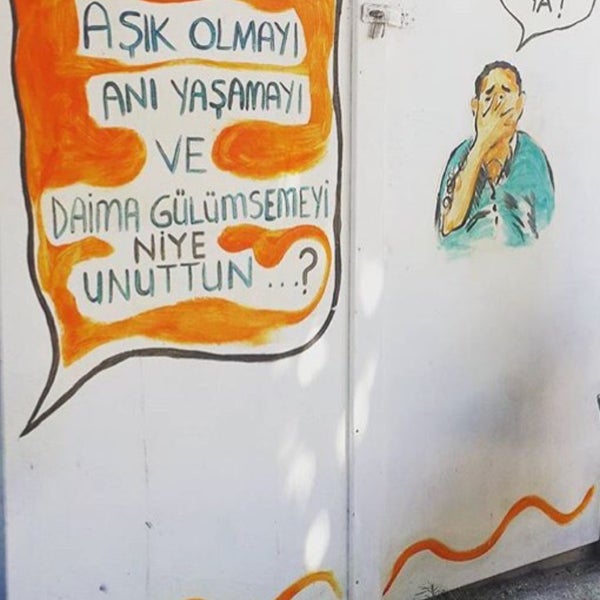 AŞIK OLMAYI
ANI YAŞAMAYI
VE
DAİMA GÜLÜMSEMEYİ
NİYE
UNUTTUN ...?
YA!